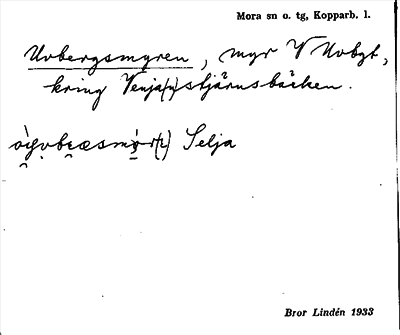 Mora sn o. tg, Kopparb. l.
Uvbergsmyren, myr V Uvbgt,
kring Venjа(n)stjärnsbäcken.
Selja
Bror Lindén 1933